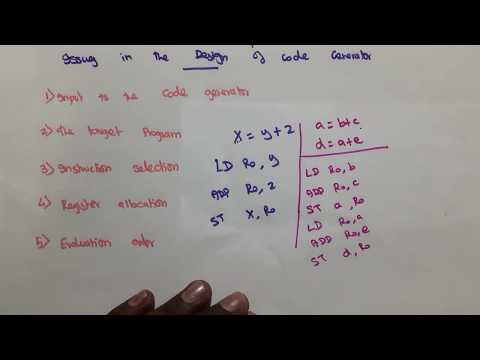 Issues in the Design of code Generator
1) Input to the code generator
2) The target Program
3) Instruction selection
4) Register allocation
5) Evaluation order
x = y + z
LD R0, y
ADD R0, z
ST x, R0
a = b+c
d = a+e
LD R0, b
ADD R0, c
ST a, R0
LD R0, a
ADD R0, e
ST d, R0